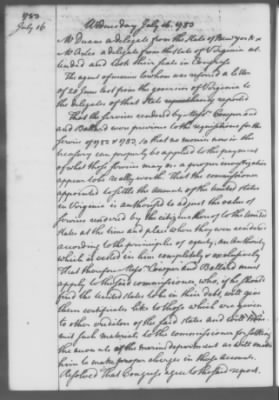 1783
July 16
Wednesday July 16. 1783
Mr Duane a delegate from the state of New york &
Mr A. Lee a delegate from the state of Virginia at-
tended and took their seats in Congress
The agent of marine to whom was referred a letter
of 20 June last from the governor of Virginia to
the delegates of that State reported
That the services rendered by Messrs Cowper and
and Ballard were previous to the requisitions for the
service of 1782 & 1783, so that no monies now in the
treasury can properly be applied to the payment
of what those services may on a proper investigation
appear to be really worth. That the commissioner
appointed to settle the accounts of the United States
in Virginia is authorised to adjust the value of
services rendered by the citizens thereof to the United
States at the time and place when they were rendered
according to the principles of equity, an Authority
which is vested in him completely & exclusively
That therefore Messrs Cowper and Ballard must
apply to the said commissioner, who, if he should
find the United States to be in their debt, will give
them certificates like to those which are given
to other creditors of the said states and will trans
mit such materials to the commissioner for settling
the accounts of the marine department as will enable
him to make proper charges in those accounts.
Resolved That Congress agree to the said report.